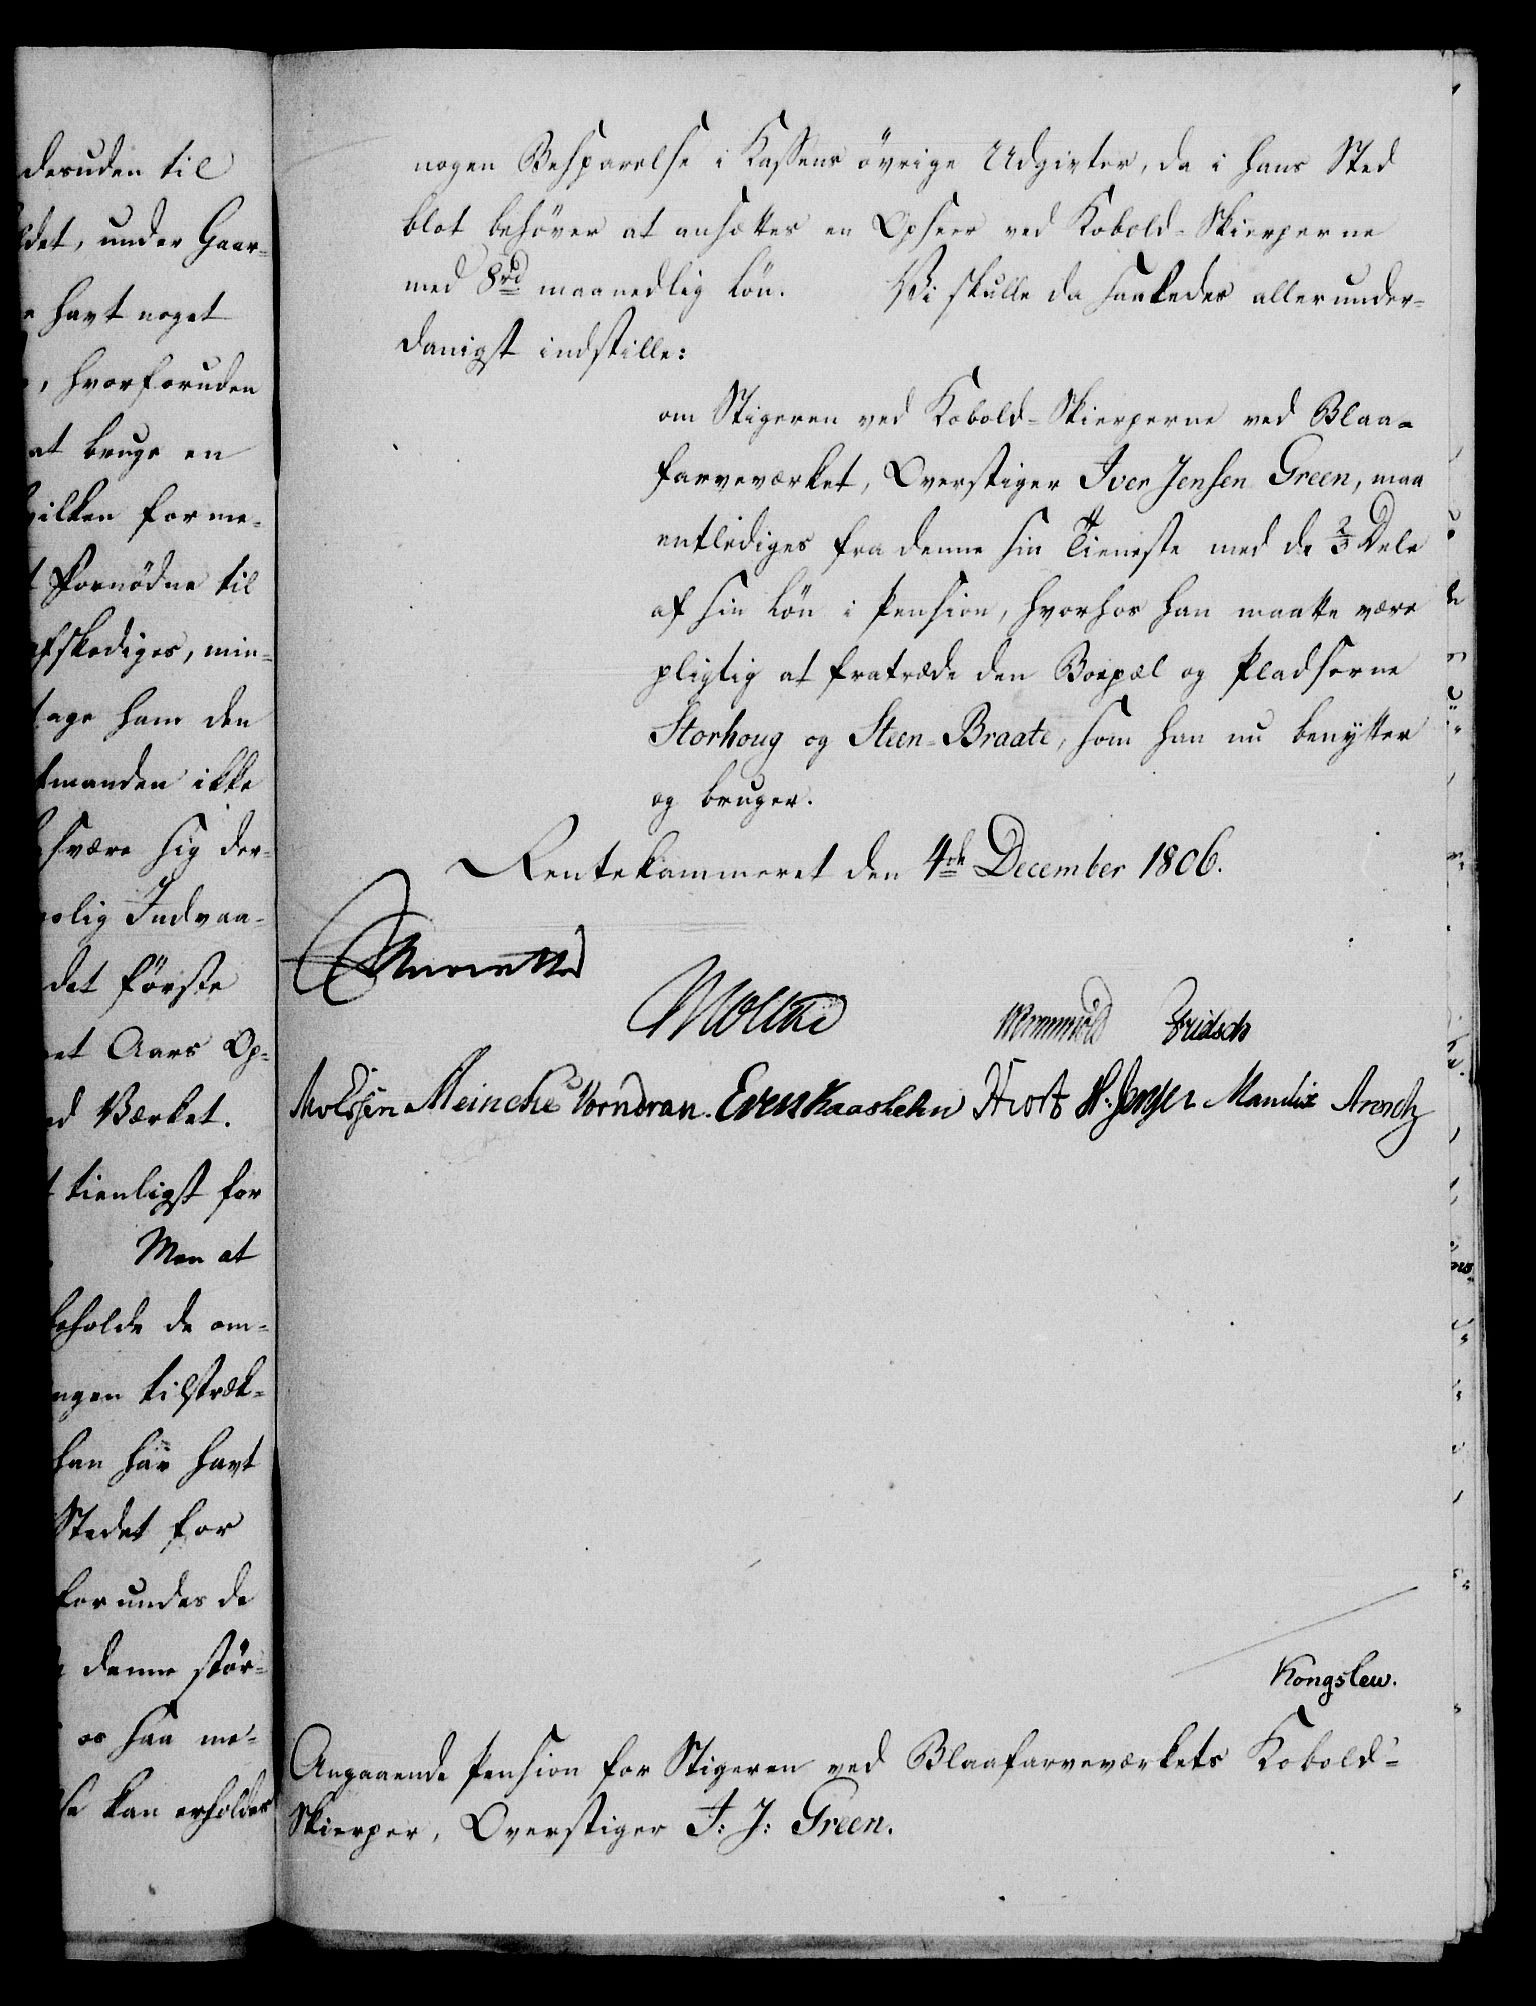 desuden til
det, under Gaar-
havt noget
, hvorforuden
at bruge en
hvilken forme-
fornödne til
afskediges, min-
tage ham den
manden ikke
svære sig der-
rolig Indvaa-
det förste
et Aars Op-
ed Værket.
tienligst for
Men at
beholde de om-
ngen tilstræk-
han har havt
Stedet for
forundes de
denne stör-
os saa me-
kan erholdes
nogen Besparelse i Kassens övrige Udgivter, da i hans Sted
blot behöver at ansættes en Opseer ved Kobold-Skierperne
med 8rd maanedlig Lön. Vi skulle da saaledes allerunder-
danigst indstille:
om Stigeren ved Kobold-Skierperne ved Blaa-
farveværket, Overstiger Iver Jensen Green, maa
entlediges fra denne sin Tieneste med de 2/3 Dele
af sin Lön i Pension, hvorhos han maatte være
pligtig at fratræde den Boepæl og Pladserne
Storhoug og Steen-Braate, som han nu benytter
og bruger.
Rentekammeret den 4de December 1806.
Moltke
Wormskiold Fridsch
Meincke Vorndran. Even Kaasbølen Hiort H. Jensen Mandix Arentz
Kongslew.
Angaaende Pension for Stigeren ved Blaafarveværkets Kobold-
Skierper, Overstiger I: J: Green.